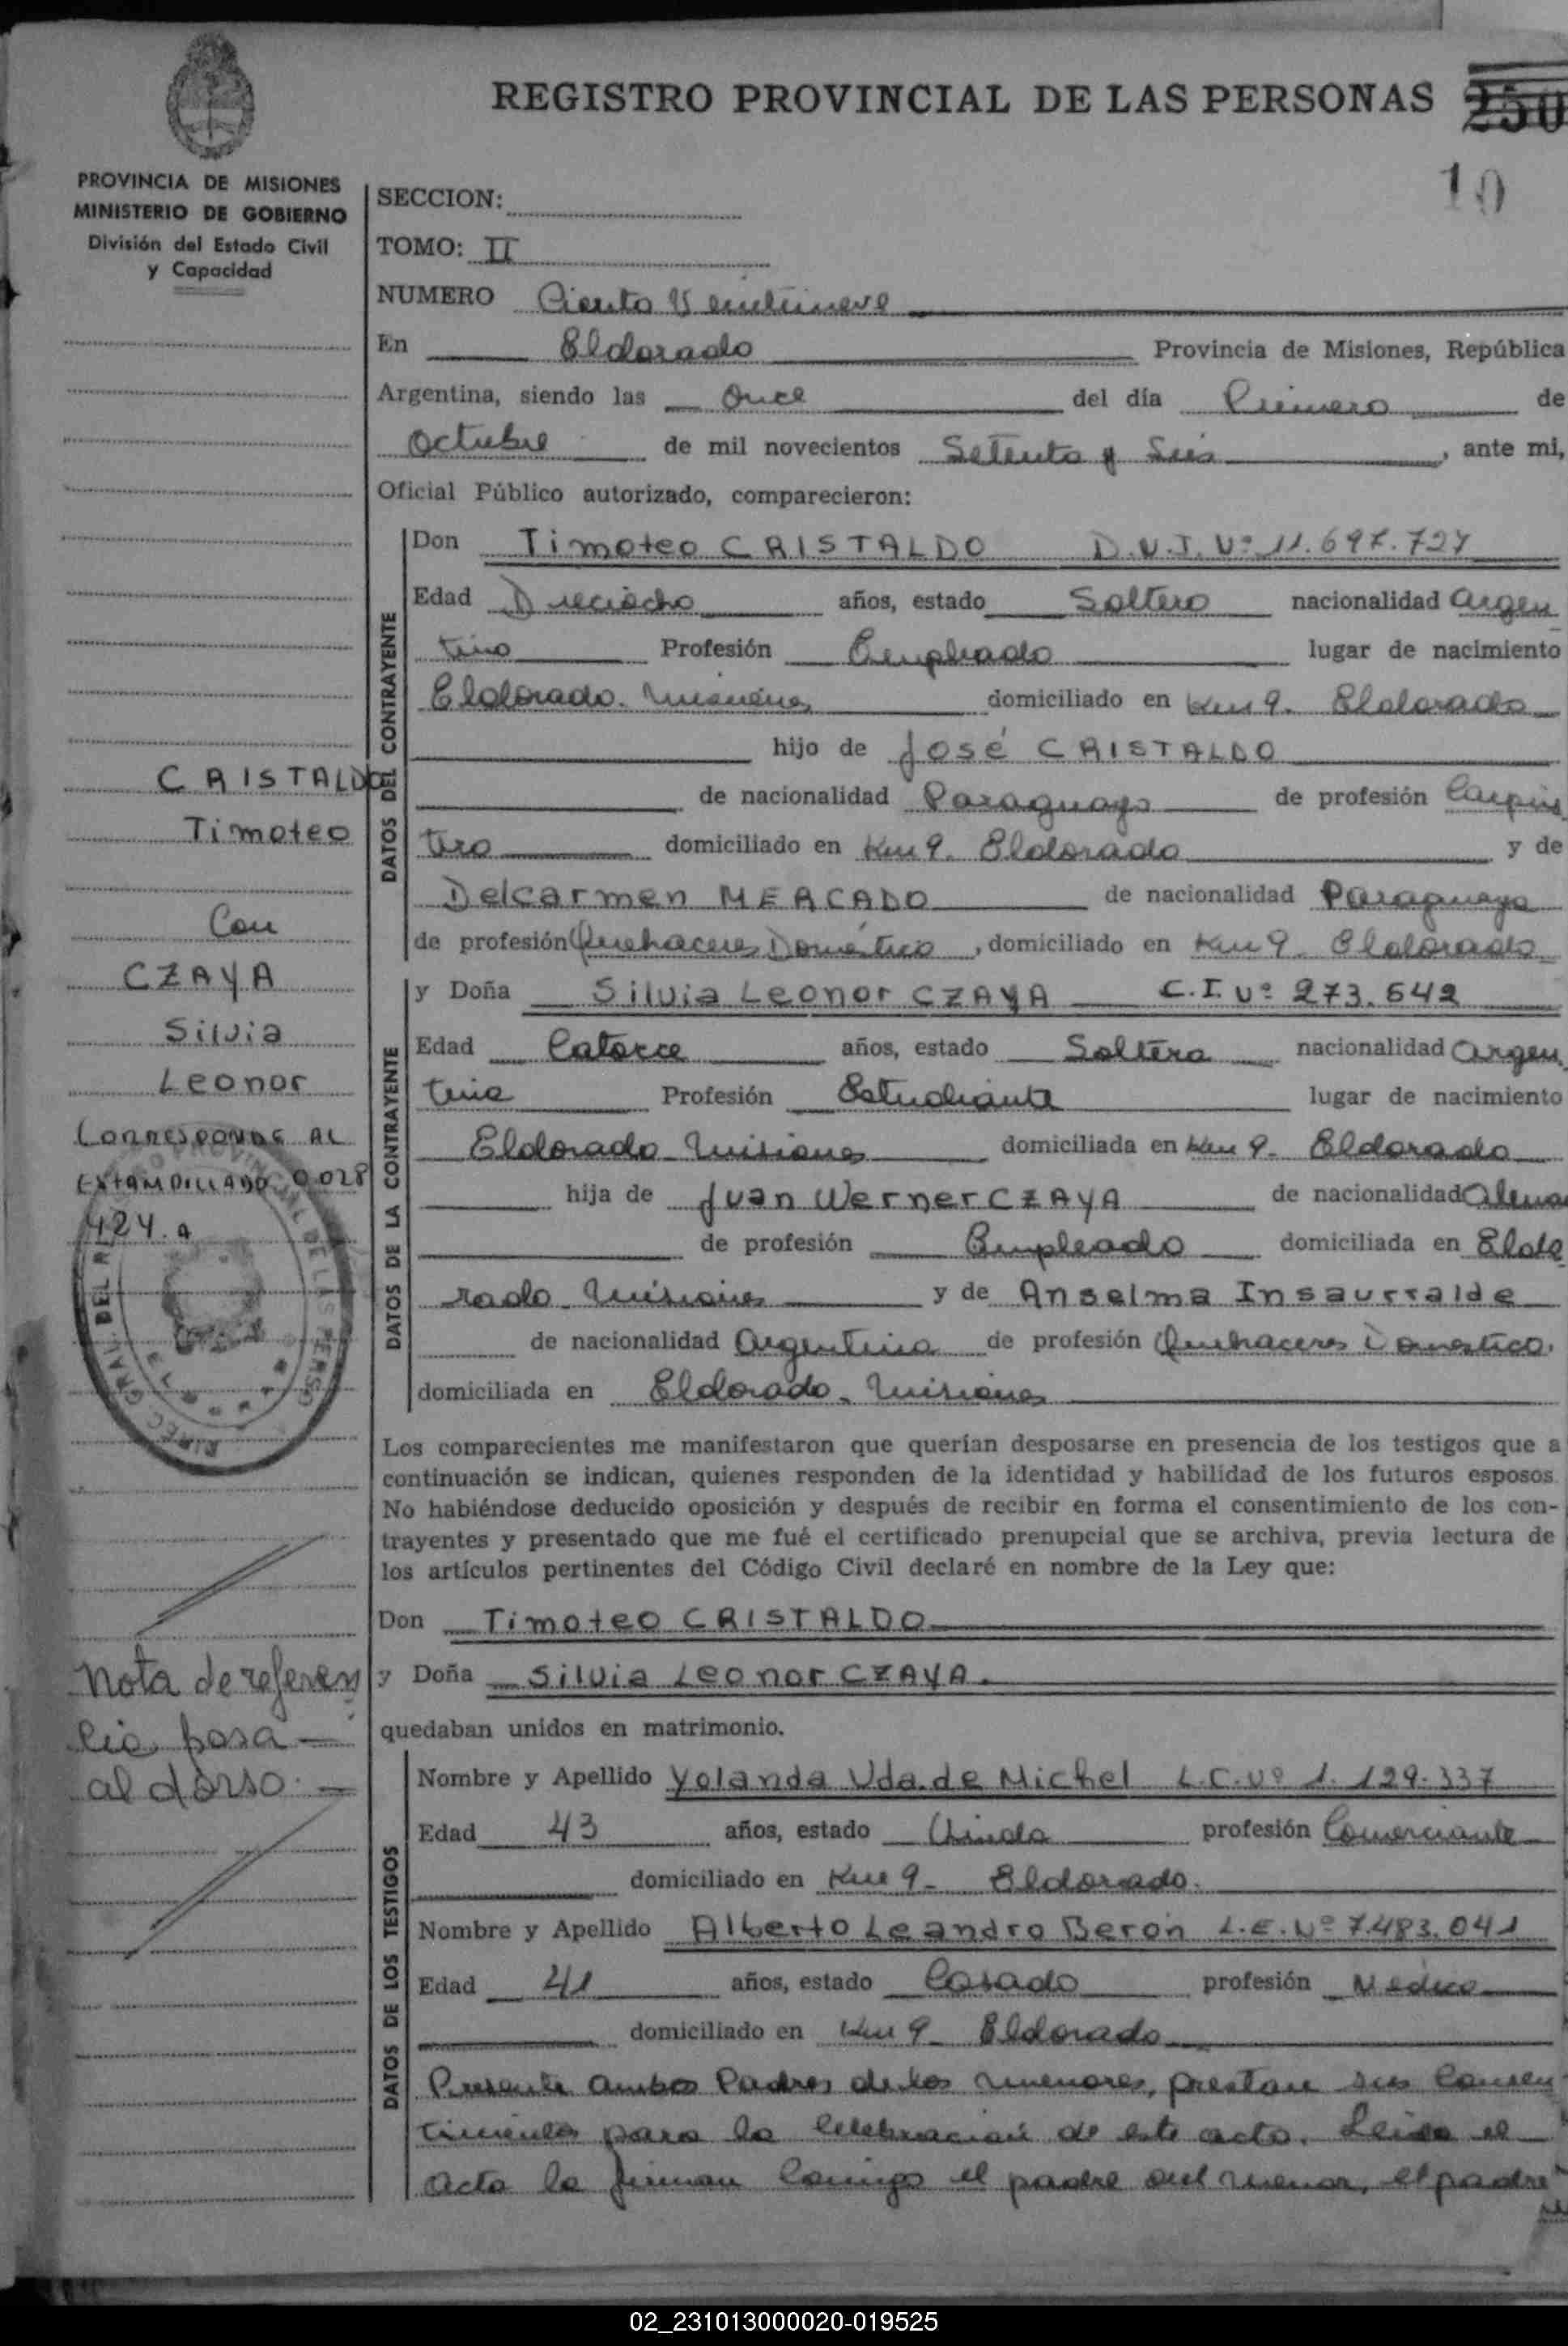 REGISTRO PROVINCIAL DE LAS PERSONAS 250
10
PROVINCIA DE MISIONES
MINISTERIO DE GOBIERNO
División del Estado Civil
y Capacidad
SECCION:
TOMO: II
NUMERO Ciento Veintinueve
En Eldorado Provincia de Misiones, República
Argentina, siendo las Once del día Primero de
Octubre de mil novecientos Setenta y Seis, ante mi,
Oficial Público autorizado, comparecieron:
DATOS DEL CONTRAYENTE
Don Timoteo CRISTALDO D.N.I. Nº 11.697.727
Edad Dieciocho años, estado Soltero nacionalidad Argen
tino Profesión Empleado lugar de nacimiento
Eldorado. Misiones domiciliado en Km 9. Eldorado
hijo de José CRISTALDO
de nacionalidad Paraguayo de profesión Carpin
tero domiciliado en Km 9. Eldorado y de
Delcarmen MERCADO de nacionalidad Paraguaya
de profesión Quehaceres Doméstico, domiciliado en Km 9. Eldorado
DATOS DE LA CONTRAYENTE
y Doña Silvia Leonor CZAYA C.I. Nº 273.642
Edad Catorce años, estado Soltera nacionalidad Argen
tina Profesión Estudiante lugar de nacimiento
Eldorado Misiones domiciliada en Km 9. Eldorado
hija de Juan Werner CZAYA de nacionalidad Alema
de profesión Empleado domiciliada en Eldo
rado Misiones y de Anselma Insaurralde
de nacionalidad Argentina de profesión Quehaceres Domestico.
domiciliada en Eldorado. Misiones
Los comparecientes me manifestaron que querían desposarse en presencia de los testigos que a
continuación se indican, quienes responden de la identidad y habilidad de los futuros esposos.
No habiéndose deducido oposición y después de recibir en forma el consentimiento de los con-
trayentes y presentado que me fué el certificado prenupcial que se archiva, previa lectura de
los artículos pertinentes del Código Civil declaré en nombre de la Ley que:
Don Timoteo CRISTALDO
y Doña Silvia Leonor CZAYA.
quedaban unidos en matrimonio.
DATOS DE LOS TESTIGOS
Nombre y Apellido Yolanda Vda. de Michel L.C. Nº 1.129.337
Edad 43 años, estado Viuda profesión Comerciante
domiciliado en Km 9. Eldorado.
Nombre y Apellido Alberto Leandro Berón L.E. Nº 7.483.041
Edad 41 años, estado Casado profesión Medico
domiciliado en Km 9. Eldorado
Presente ambos Padres de los menores, prestan sus Consen
timientos para la Celebración de este acto. Leida el
Acta la firman Conmigo el padre del menor, el padre
CRISTALDO
Timoteo
Con
CZAYA
Silvia
Leonor
CORRESPONDE AL
EXTAMPILLADO 0028
424. A
Nota de referen
cia pasa
al dorso.
02_231013000020-019525